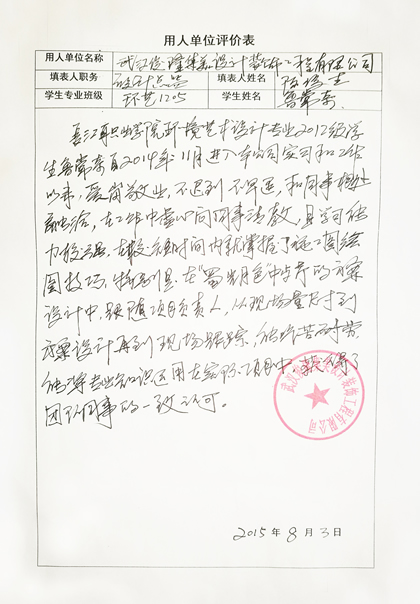 用人单位评价表
用人单位名称 武汉 设计装饰工程有限公司
填表人职务 设计总监 填表人姓名
学生专业班级 环艺1205 学生姓名 鲁常亲
长江职业学院环境艺术设计专业2012级学
生鲁常亲自2014年11月进入本公司实习和工作
以来，爱岗敬业，不迟到不早退，和同事相处
融洽，在工作中虚心向同事请教，且学习能
力较强，在较短时间内就掌握了施工图绘
图技巧，特别是在 中与 的方案
设计中，跟随项目负责人，从现场量尺寸到
方案设计再到现场跟踪，能吃苦耐劳
能将专业知识运用在实际项目中，获得了
团队同事的一致认可。
装饰工程有限公司
2015年8月3日